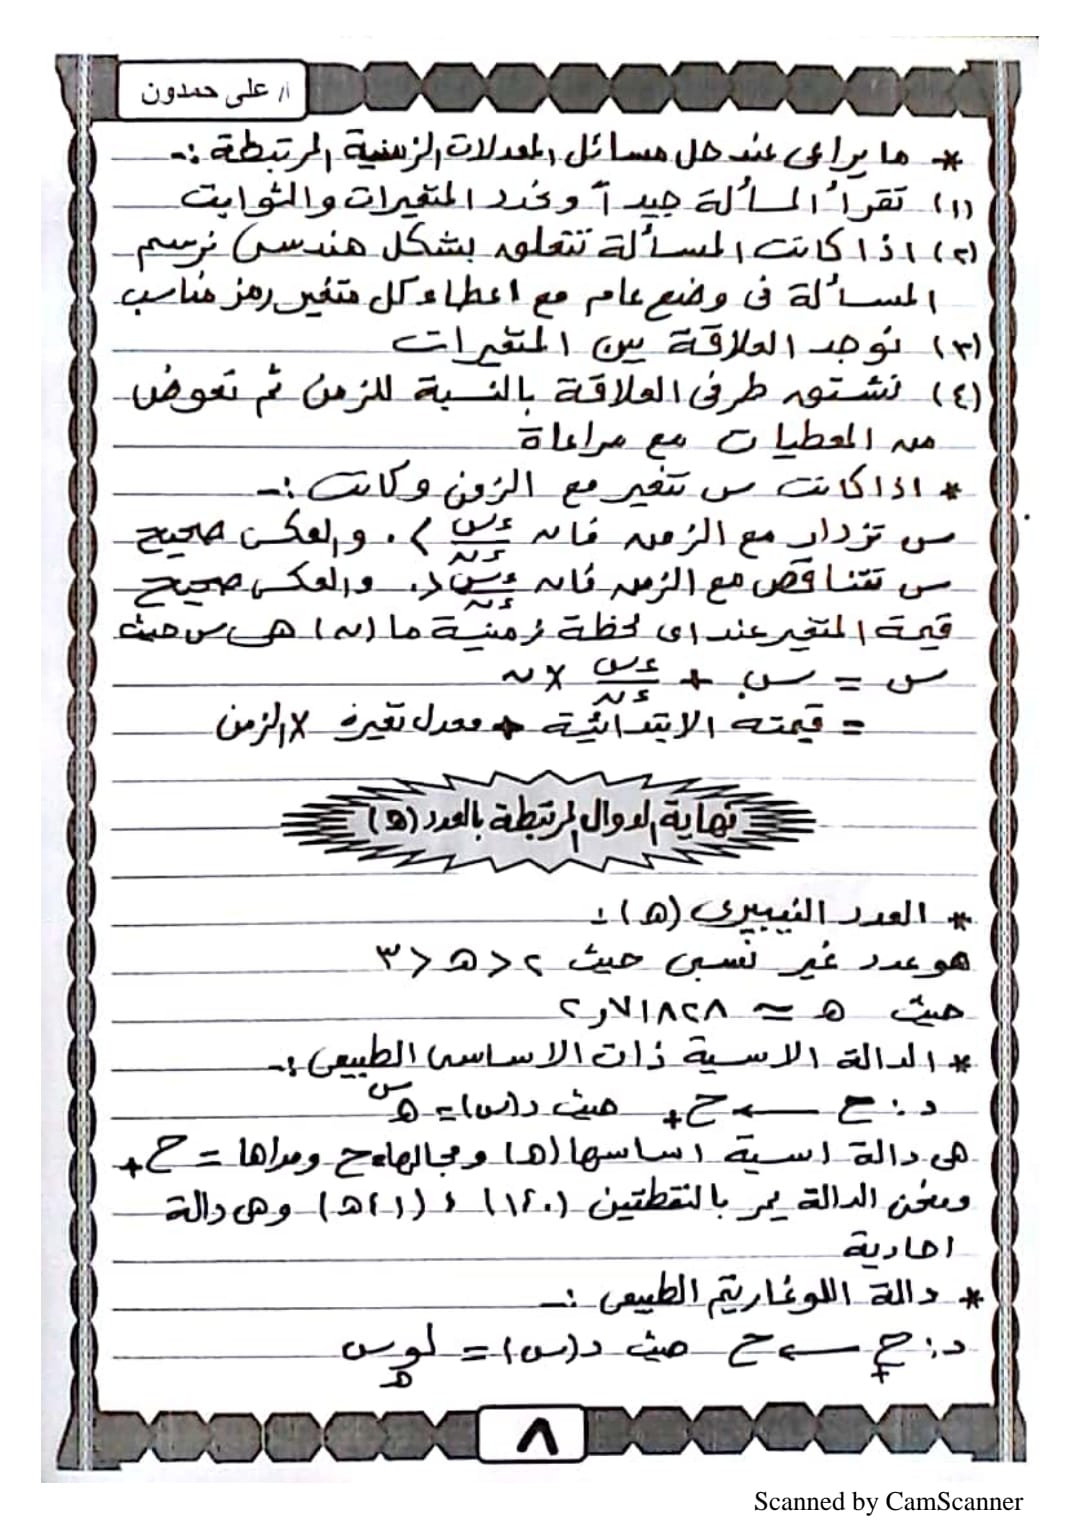 أ/ على حمدون
* ما يراعى عند حل مسائل المعدلات الزمنية المرتبطة :-
(١) تقرأ المسألة جيداً وتحدد المتغيرات والثوابت
(٢) اذا كانت المسألة تتعلق بشكل هندسى نرسم
المسألة فى وضع عام مع اعطاء كل متغير رمز مناسب
(٣) نوجد العلاقة بين المتغيرات
(٤) نشتق طرفى العلاقة بالنسبة للزمن ثم نعوض
من المعطيات مع مراعاة
* اذا كانت س تتغير مع الزمن وكانت :-
س تزداد مع الزمن فان ءس/ءن > ٠ والعكس صحيح
س تتناقص مع الزمن فان ءس/ءن < ٠ والعكس صحيح
قيمة المتغير عند اى لحظة زمنية ما (ن) هى س حيث
س = س٠ + ءس/ءن × ن
= قيمته الابتدائية + معدل تغيره × الزمن
نهاية الدوال المرتبطة بالعدد (ه)
* العدد النيبيرى (ه) :
هو عدد غير نسبى حيث ٢ < ه < ٣
حيث ه ≈ ٢٫٧١٨٢٨
* الدالة الاسية ذات الاساسى الطبيعى :-
د : ح ← ح+ حيث د(س) = ه^س
هى دالة اسية اساسها (ه) ومجالها ح ومداها = ح+
ومنحنى الدالة يمر بالنقطتين (٠،١) ، (١،ه) وهى دالة
احادية
* دالة اللوغاريتم الطبيعى :-
د : ح+ ← ح حيث د(س) = لو_ه س
٨
Scanned by CamScanner